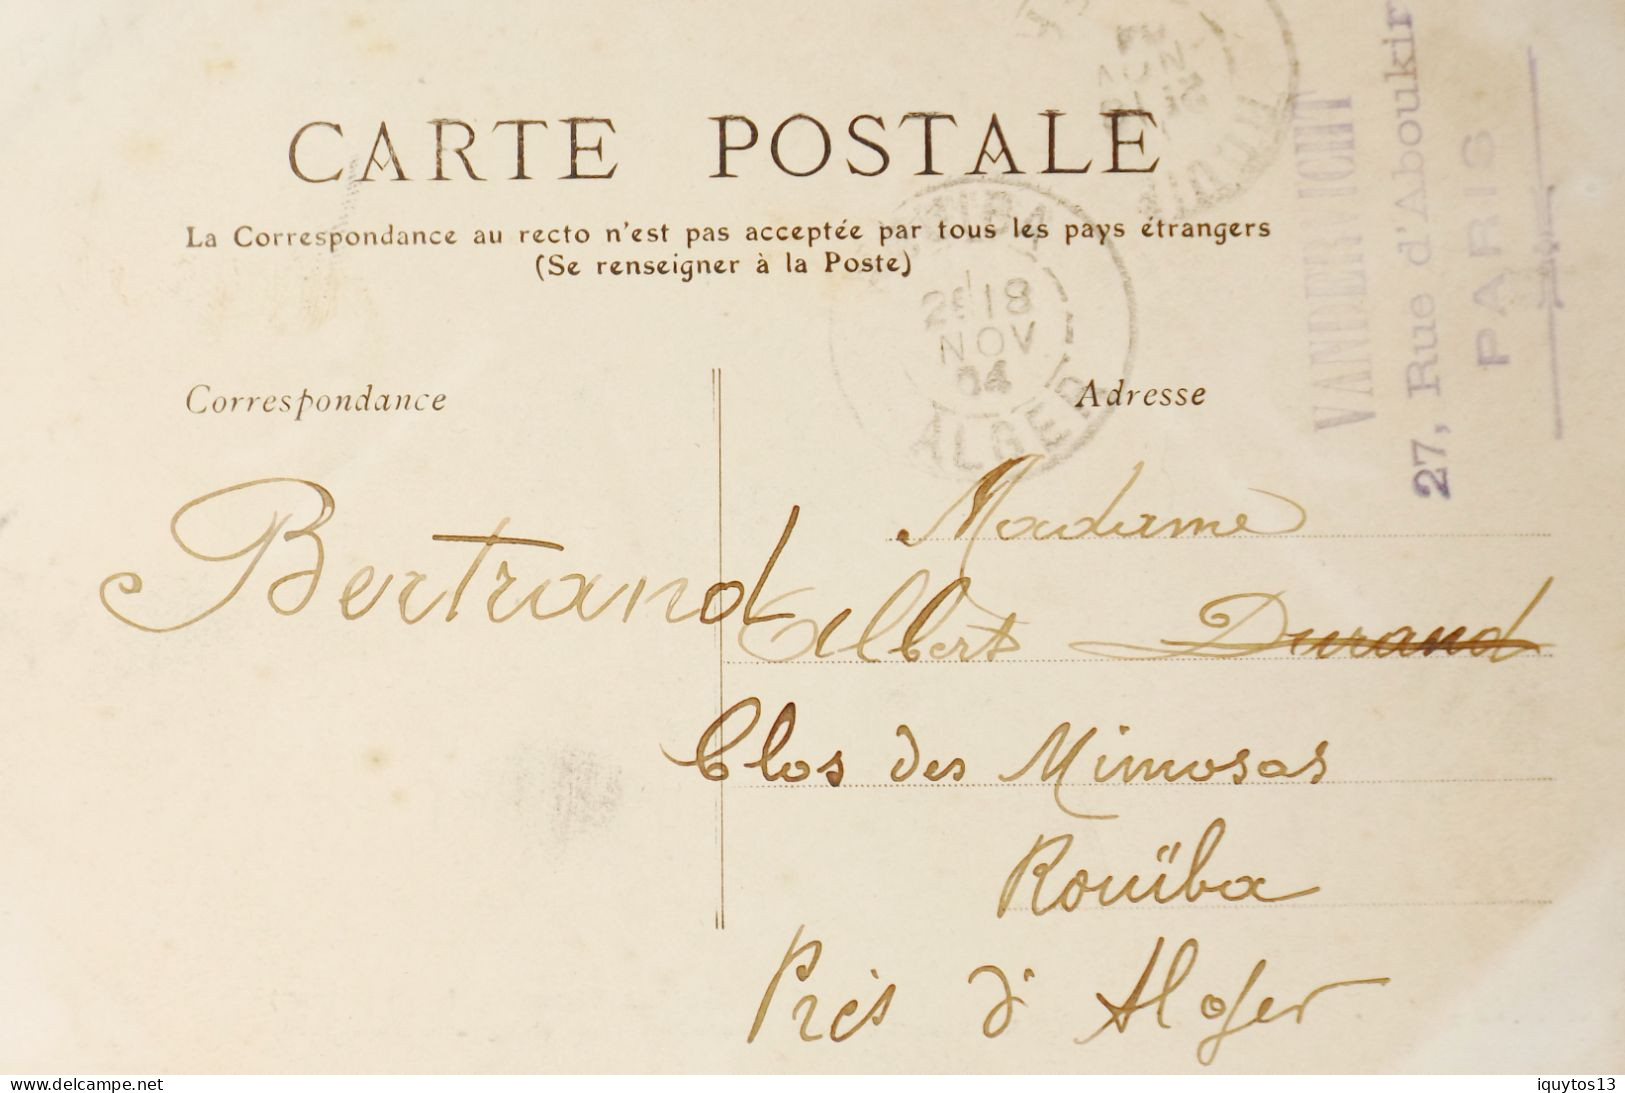 CARTE POSTALE
La Correspondance au recto n'est pas acceptée par tous les pays étrangers
(Se renseigner à la Poste)
VANDERVICHT
27, Rue d'Aboukir
PARIS
18
NOV
04
ALGER
Correspondance
Adresse
Bertrand
Madame
Albert Durand
Clos des Mimosas
Rouïba
Près d'Alger
www.delcampe.net
iquytos13